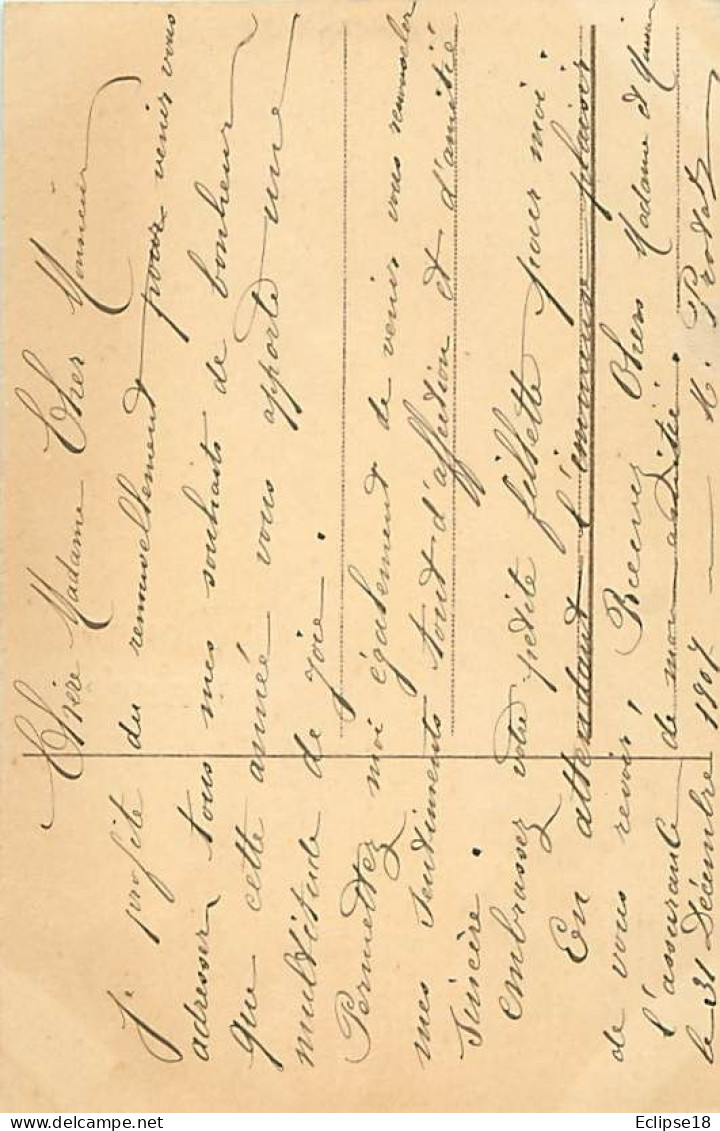 Chère Madame Cher Monsieur
J' profite du renouvellement pour venir vous
adresser tous mes souhaits de bonheur
que cette année vous apporte une
multitude de joie.
Permettez moi également de venir vous renouveler
mes sentiments tout d'affection et d'amitié
sincère.
embrassez votre petite fillette pour moi.
En attendant l'immense plaisir
de vous revoir, Recevez Chers Madame et Monsieur
l'assurance de mon amitié.
le 31 Décembre 1907 — M.
Eclipse18